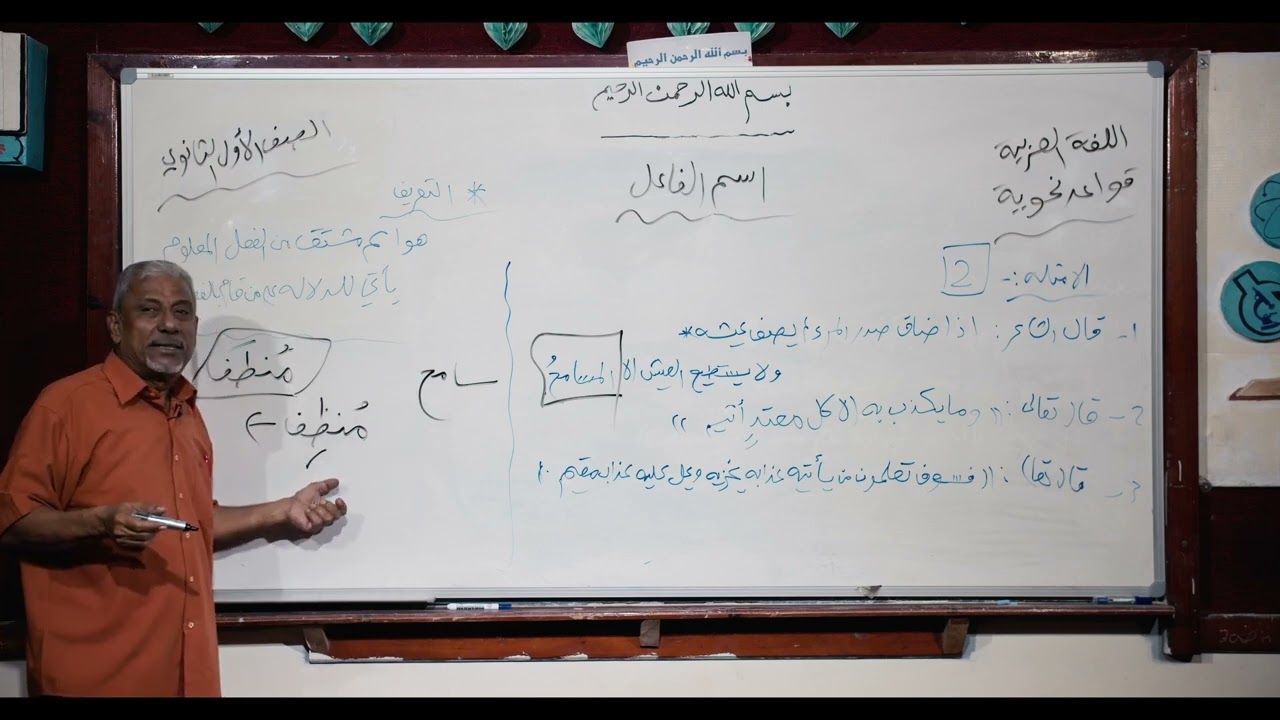 بسم الله الرحمن الرحيم
بسم الله الرحمن الرحيم
اللغة العربية
قواعد نحوية
اسم الفاعل
الصف الأول الثانوي
الامثله :-
2
1- قال الشاعر : اذا ضاق صدر المرء لم يصف عيشه *
ولا يستطيع العيش الا المسامحُ
2- قال تعالى : " وما يكذب به الا كل معتدٍ أثيم "
3- قال تعا) : " فسوف تعلمون من يأتيه عذاب يخزيه ويحل عليه عذاب مقيم "
* التعريف
هو اسم مشتق من الفعل المعلوم
يأتي للدلالة على من قام
سامح
مُنطفَا
مُنطِفا